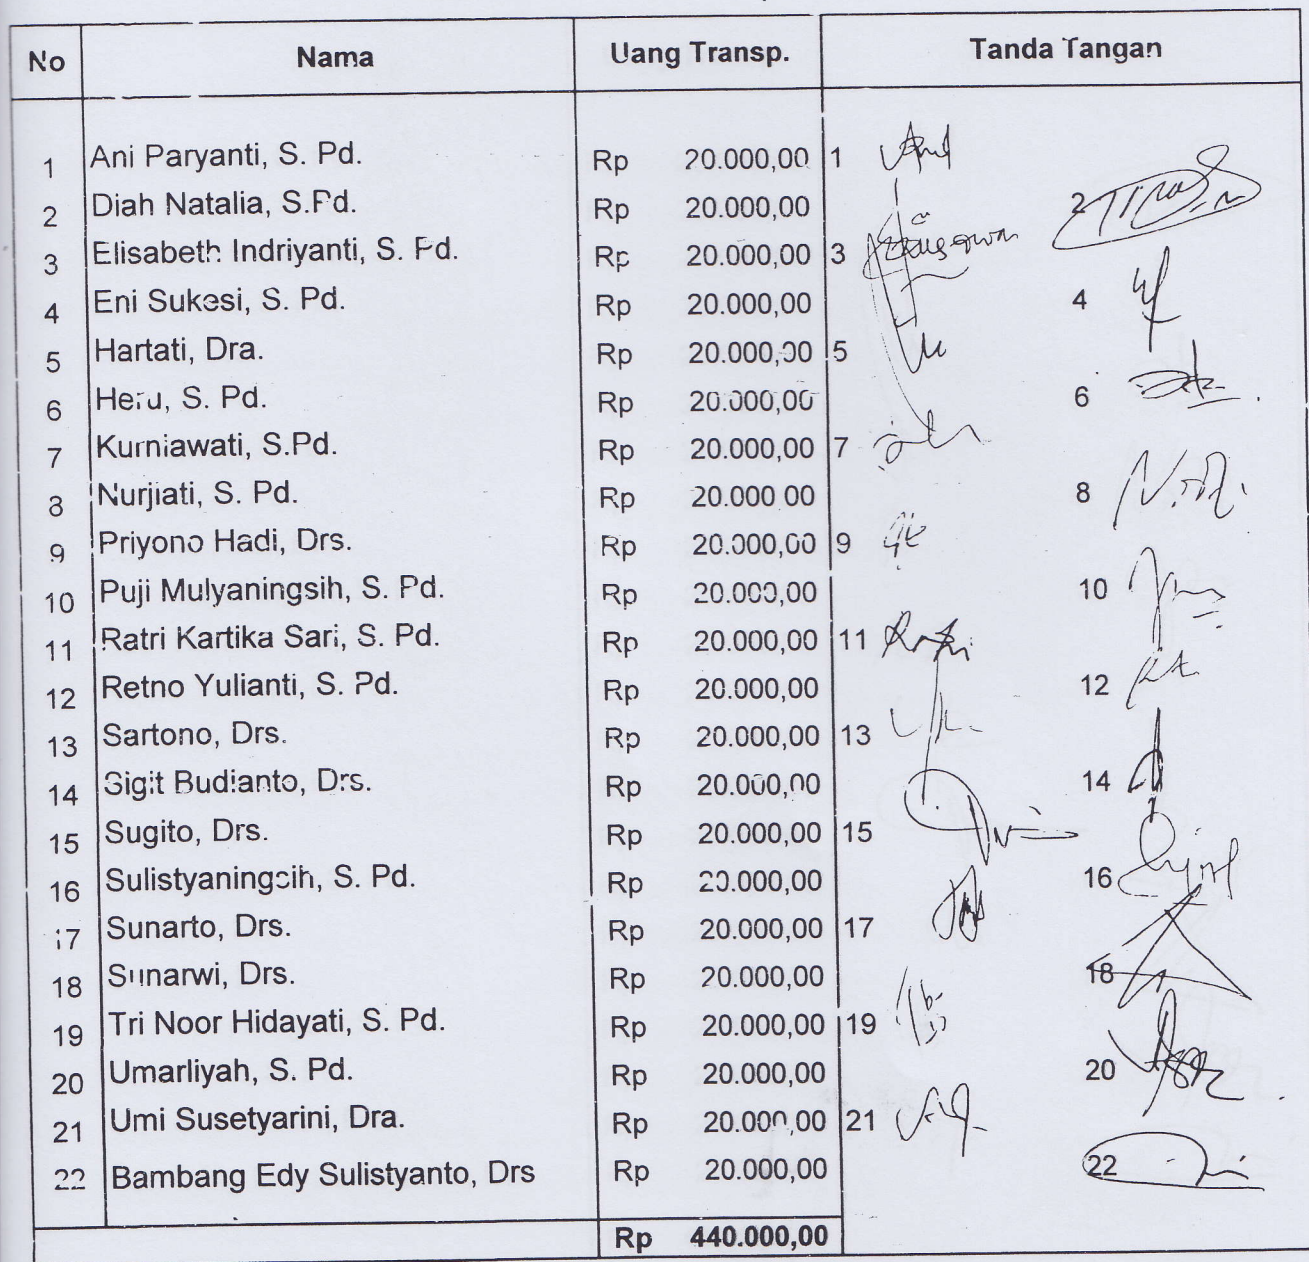 No Nama Uang Transp. Tanda Tangan
1 Ani Paryanti, S. Pd. Rp 20.000,00 1
2 Diah Natalia, S.Pd. Rp 20.000,00 2
3 Elisabeth Indriyanti, S. Pd. Rp 20.000,00 3
4 Eni Sukesi, S. Pd. Rp 20.000,00 4
5 Hartati, Dra. Rp 20.000,00 5
6 Heru, S. Pd. Rp 20.000,00 6
7 Kurniawati, S.Pd. Rp 20.000,00 7
8 Nurjiati, S. Pd. Rp 20.000 00 8
9 Priyono Hadi, Drs. Rp 20.000,00 9
10 Puji Mulyaningsih, S. Pd. Rp 20.000,00 10
11 Ratri Kartika Sari, S. Pd. Rp 20.000,00 11
12 Retno Yulianti, S. Pd. Rp 20.000,00 12
13 Sartono, Drs. Rp 20.000,00 13
14 Sigit Budianto, Drs. Rp 20.000,00 14
15 Sugito, Drs. Rp 20.000,00 15
16 Sulistyaningsih, S. Pd. Rp 20.000,00 16
17 Sunarto, Drs. Rp 20.000,00 17
18 Sunarwi, Drs. Rp 20.000,00 18
19 Tri Noor Hidayati, S. Pd. Rp 20.000,00 19
20 Umarliyah, S. Pd. Rp 20.000,00 20
21 Umi Susetyarini, Dra. Rp 20.000,00 21
22 Bambang Edy Sulistyanto, Drs Rp 20.000,00 22
Rp 440.000,00